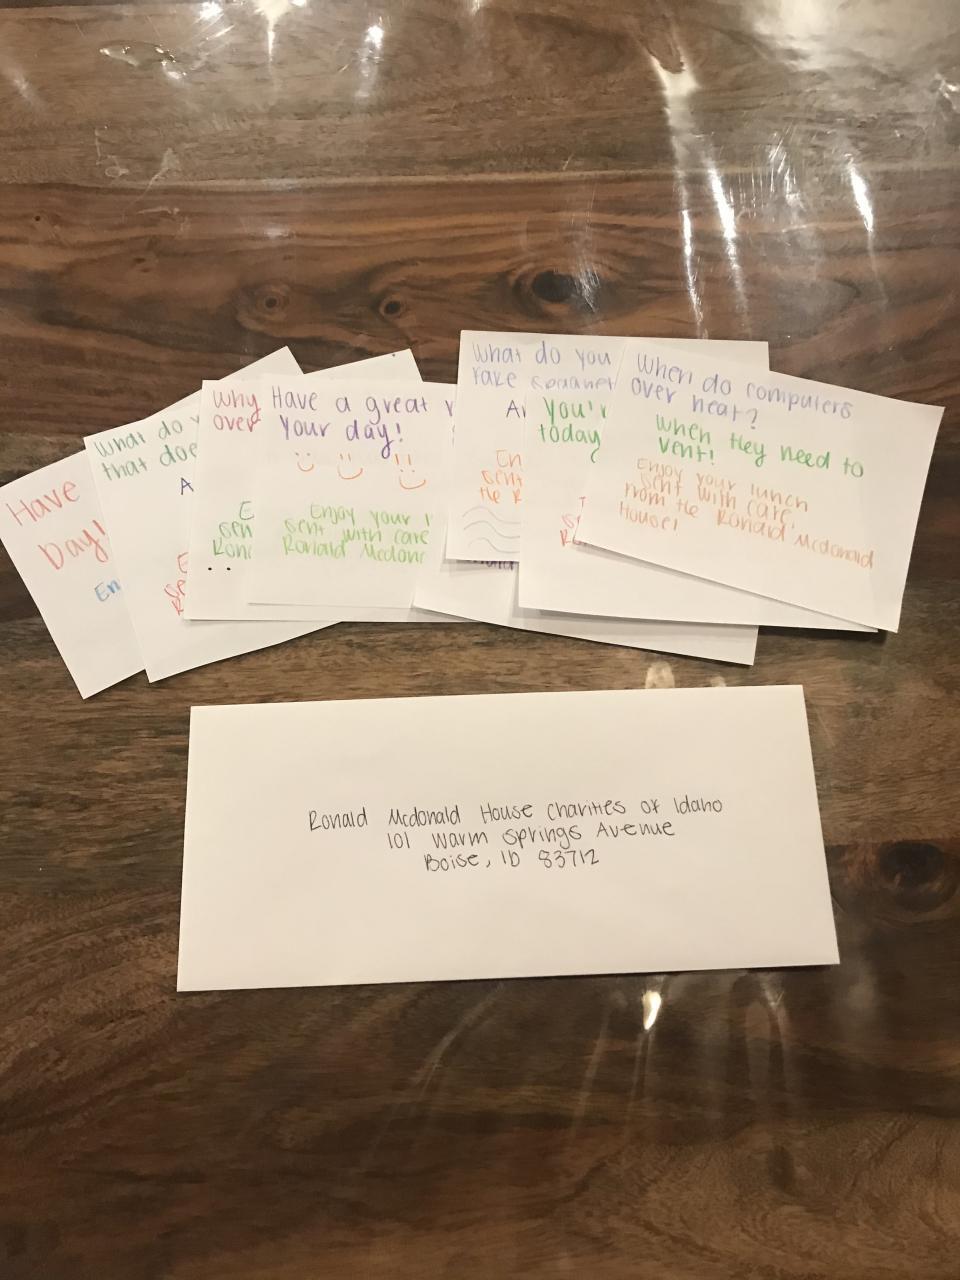 Have
Day!
En
What do y
that doe
A
E
se
R
Why
over
E
sen
Rona
Have a great
your day!
Enjoy your l
sent with care
Ronald Mcdona
What do you
Ar
En
sent
the R
You'r
today
When do computers
over heat?
When they need to
vent!
Enjoy your lunch
sent with care,
from the Ronald Mcdonald
House!
Ronald Mcdonald House Charities of Idaho
101 Warm Springs Avenue
Boise, ID 83712